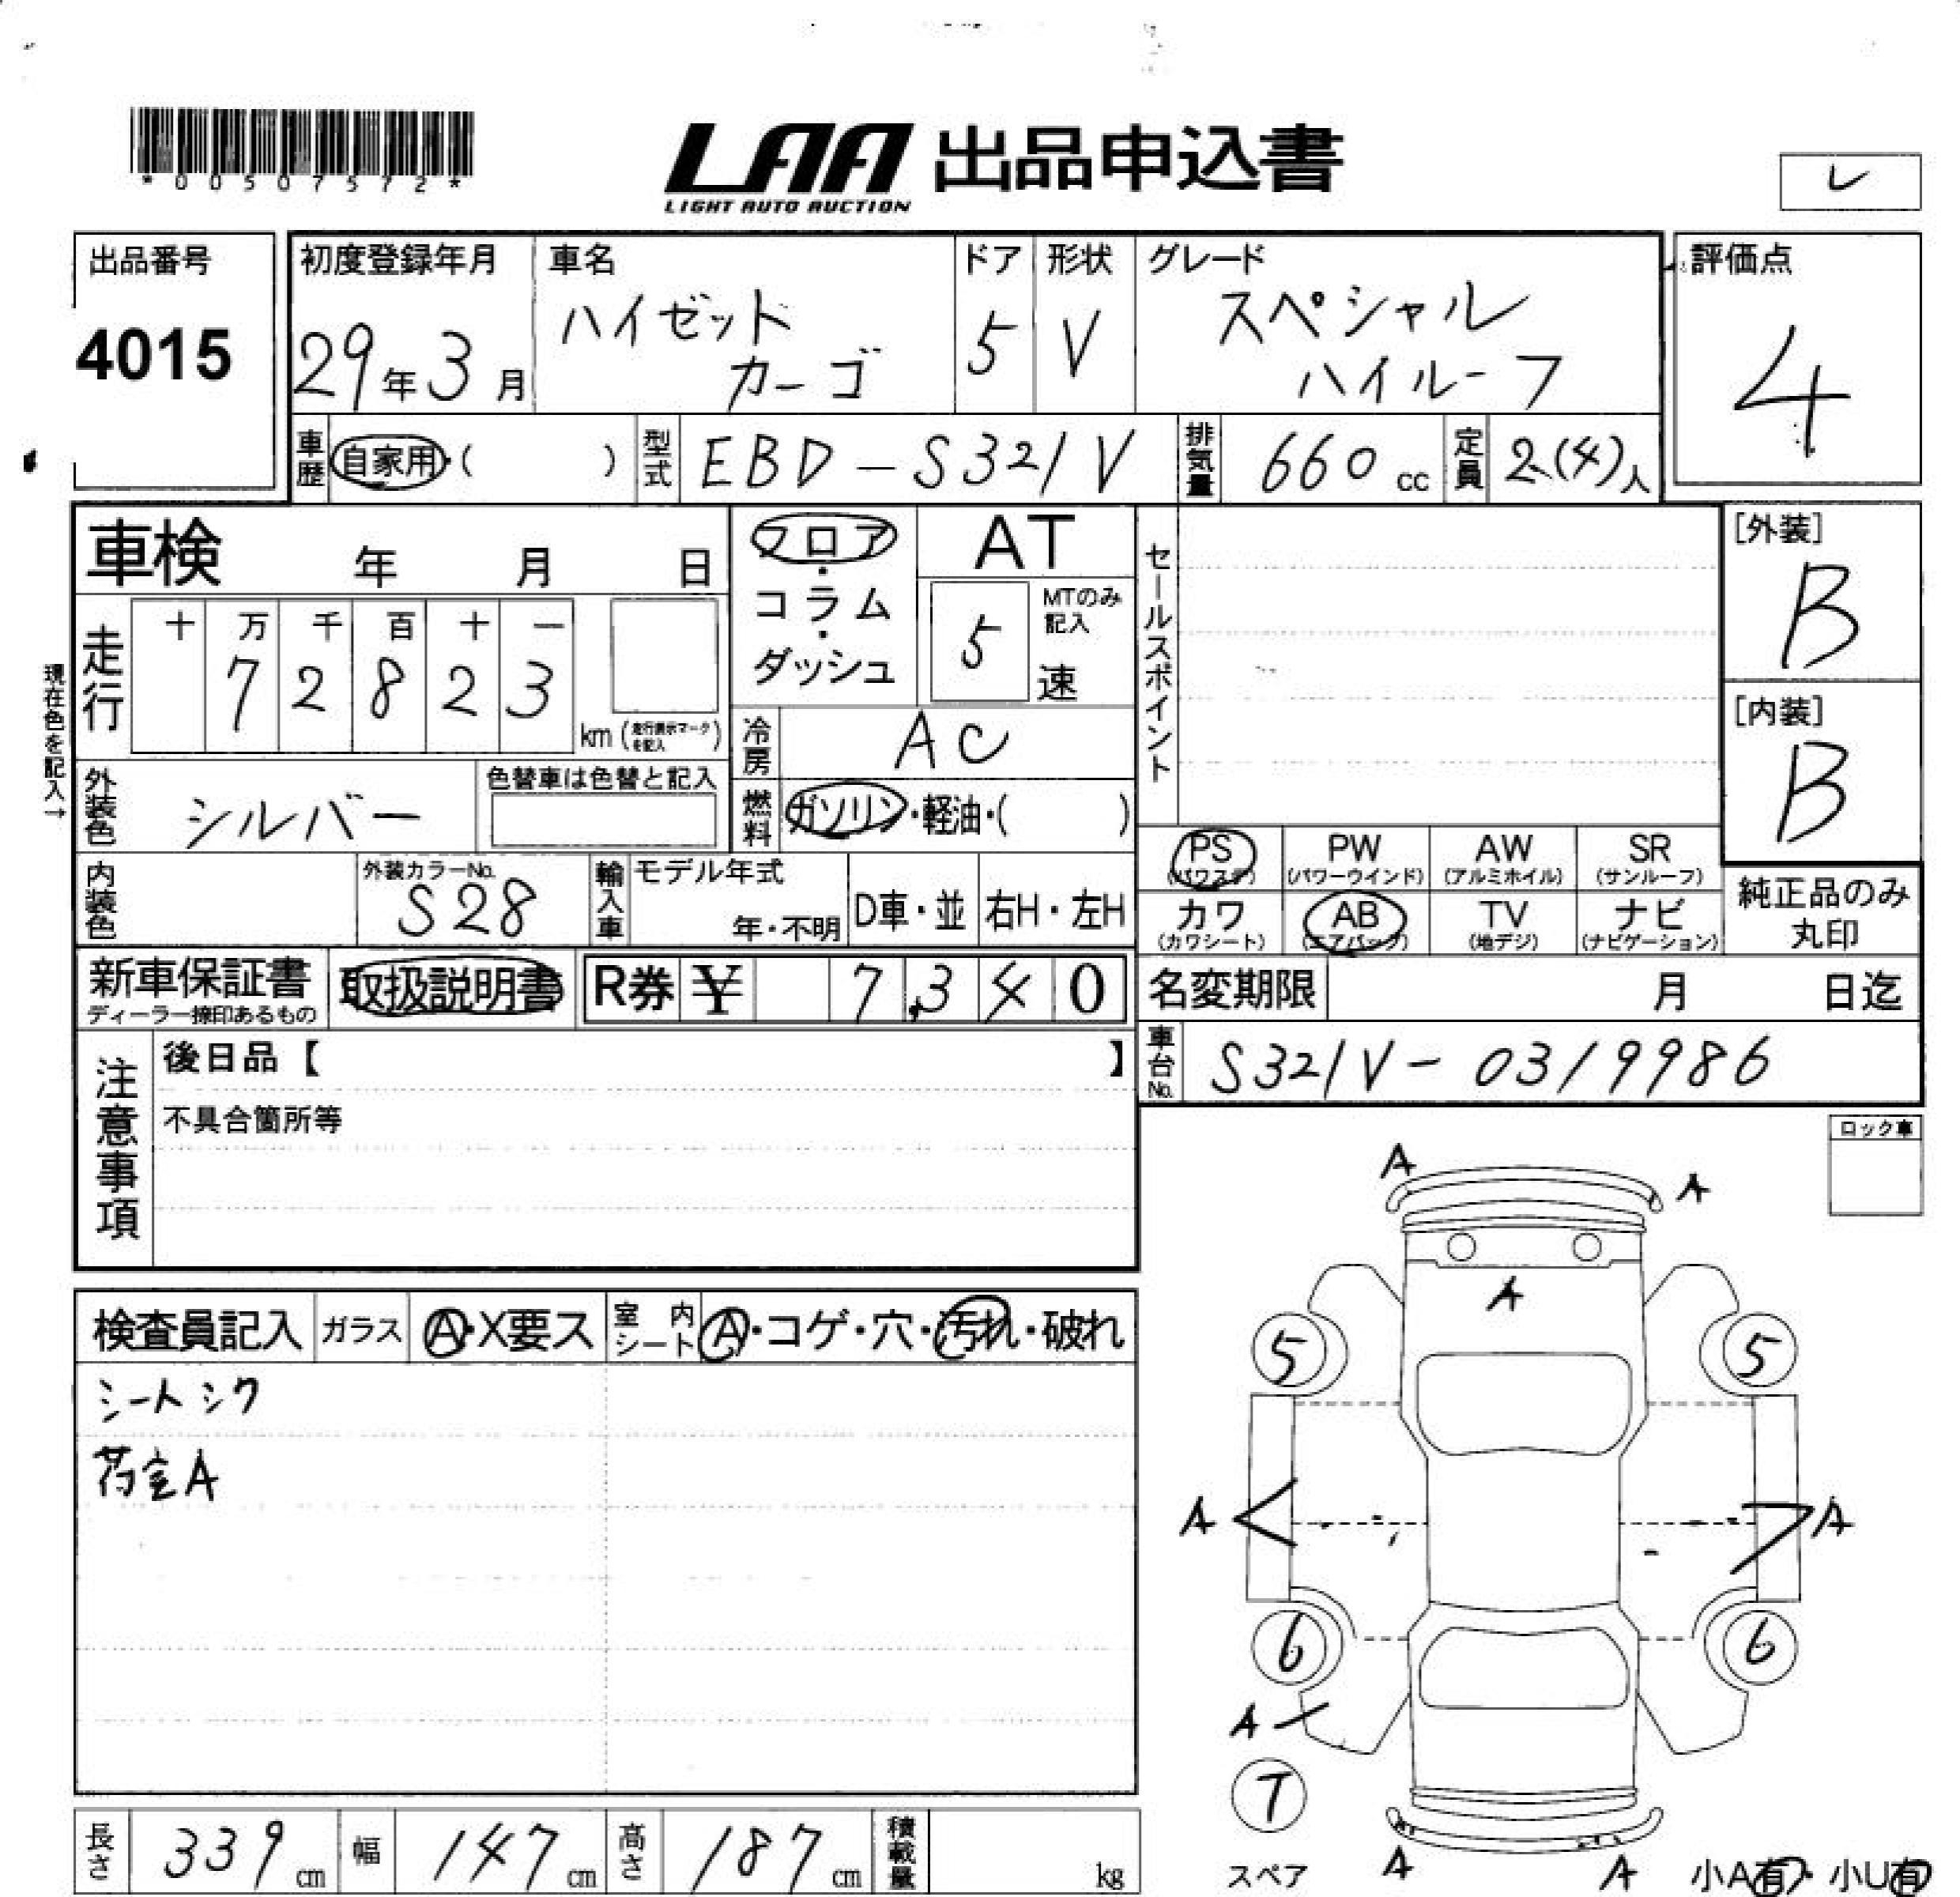 *00507572*
LAA 出品申込書
LIGHT AUTO AUCTION
レ
出品番号
4015
初度登録年月
29年3月
車名
ハイゼット
カーゴ
ドア
5
形状
V
グレード
スペシャル
ハイルーフ
評価点
4
車歴 自家用・( )
型式 EBD-S321V
排気量 660cc
定員 2(4)人
車検 年 月 日
フロア・コラム・ダッシュ
AT
5
MTのみ記入
速
セールスポイント
[外装]
B
[内装]
B
現在色を記入→
走行
十 万 千 百 十 一
7 2 8 2 3
km (走行表示マークを記入)
冷房 AC
外装色 シルバー
色替車は色替と記入
燃料 ガソリン・軽油・( )
PS (パワステ)
PW (パワーウインド)
AW (アルミホイル)
SR (サンルーフ)
内装色
外装カラーNo.
S28
輸入車
モデル年式
年・不明
D車・並
右H・左H
カワ (カワシート)
AB (エアバッグ)
TV (地デジ)
ナビ (ナビゲーション)
純正品のみ
丸印
新車保証書
ディーラー捺印あるもの
取扱説明書
R券 ¥ 7,340
名変期限 月 日迄
車台No. S321V-0319986
注意事項
後日品【 】
不具合箇所等
ロック車
検査員記入
ガラス A・X要ス
室内シート A・コゲ・穴・汚れ・破れ
シートシワ
荷室A
A
A
A
5
5
A
A
6
6
A
T
スペア
A
A
小A有・小U有
長さ 339cm
幅 147cm
高さ 187cm
積載量 kg